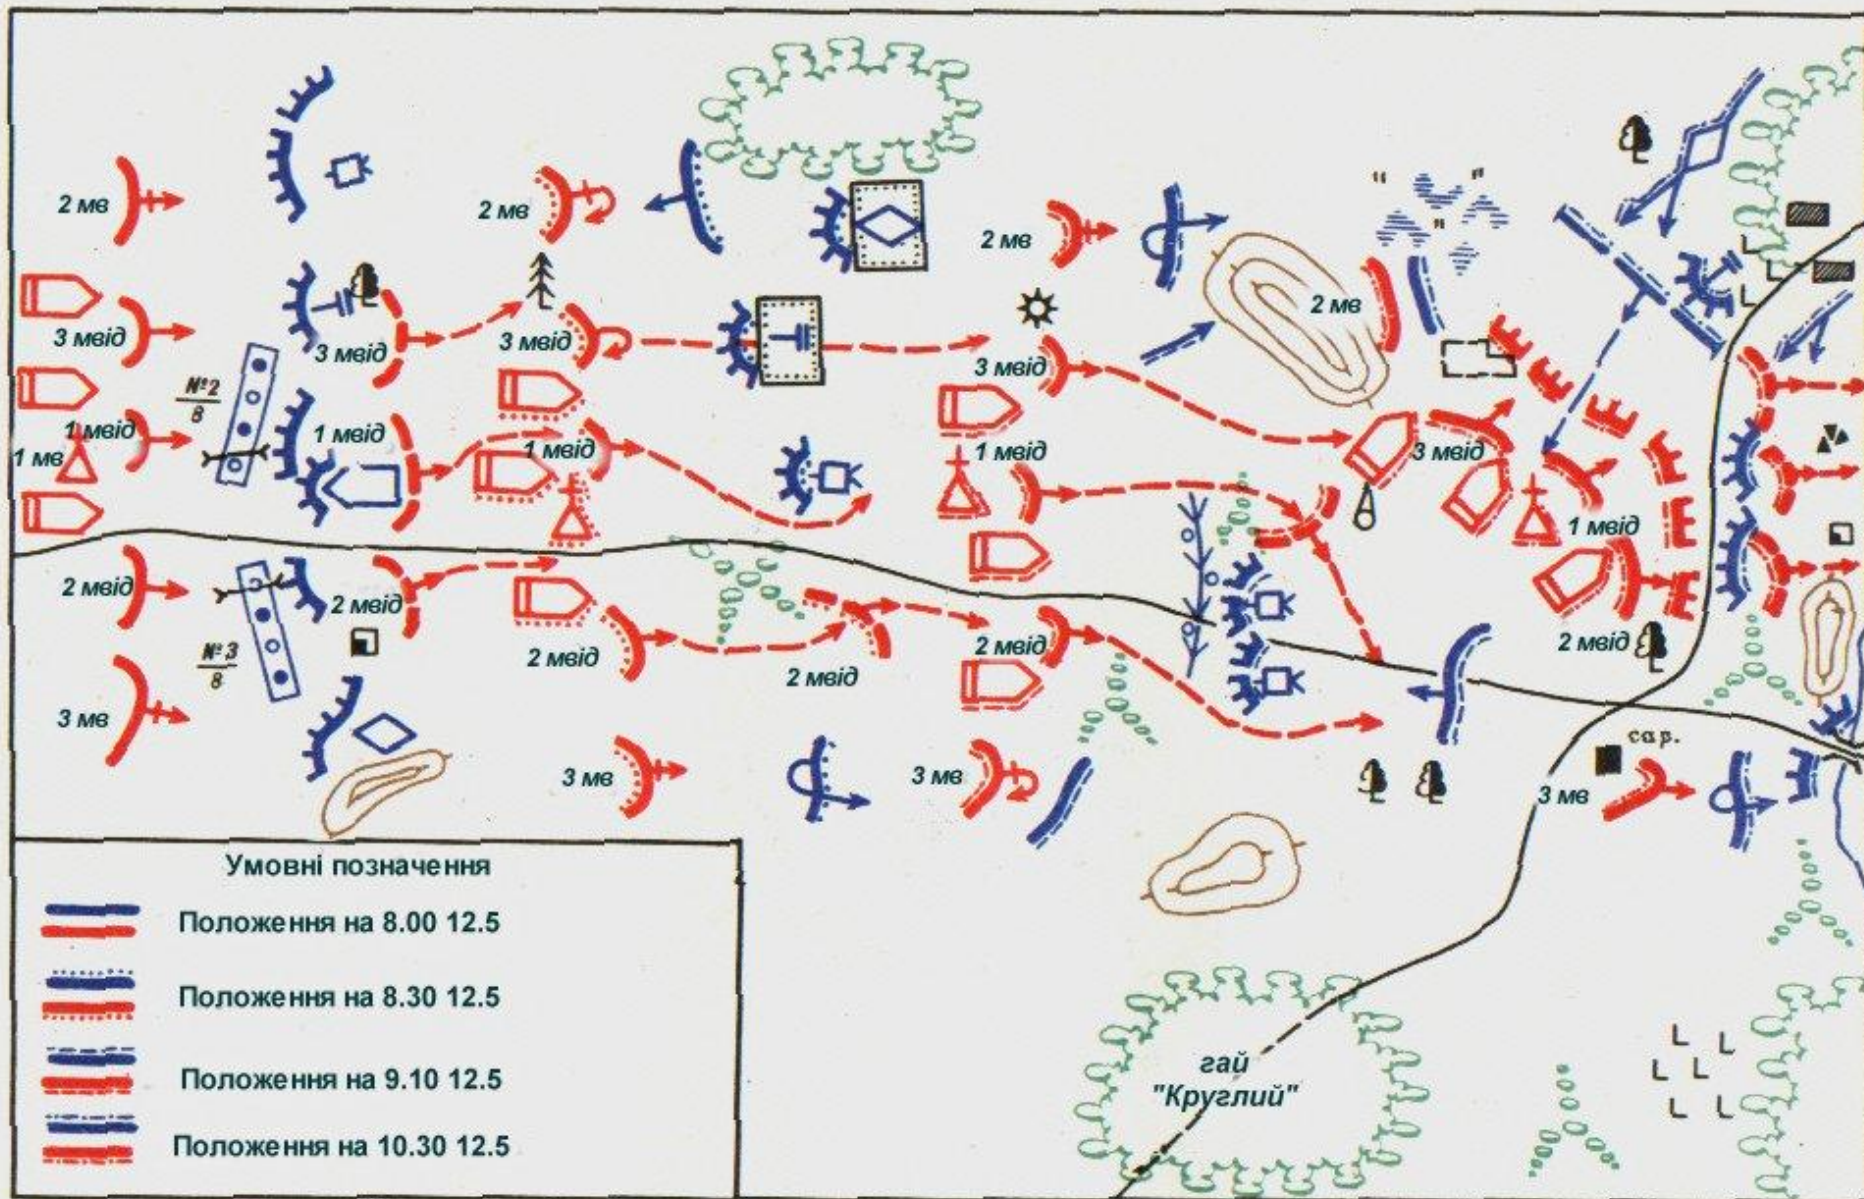 2 мв
2 мв
2 мв
2 мв
3 мвід
3 мвід
3 мвід
3 мвід
3 мвід
№2
8
1 мвід
1 мв
1 мвід
1 мвід
1 мвід
1 мвід
2 мвід
2 мвід
2 мвід
2 мвід
2 мвід
2 мвід
№3
8
3 мв
3 мв
3 мв
3 мв
сар.
Умовні позначення
Положення на 8.00 12.5
Положення на 8.30 12.5
Положення на 9.10 12.5
Положення на 10.30 12.5
гай
"Круглий"